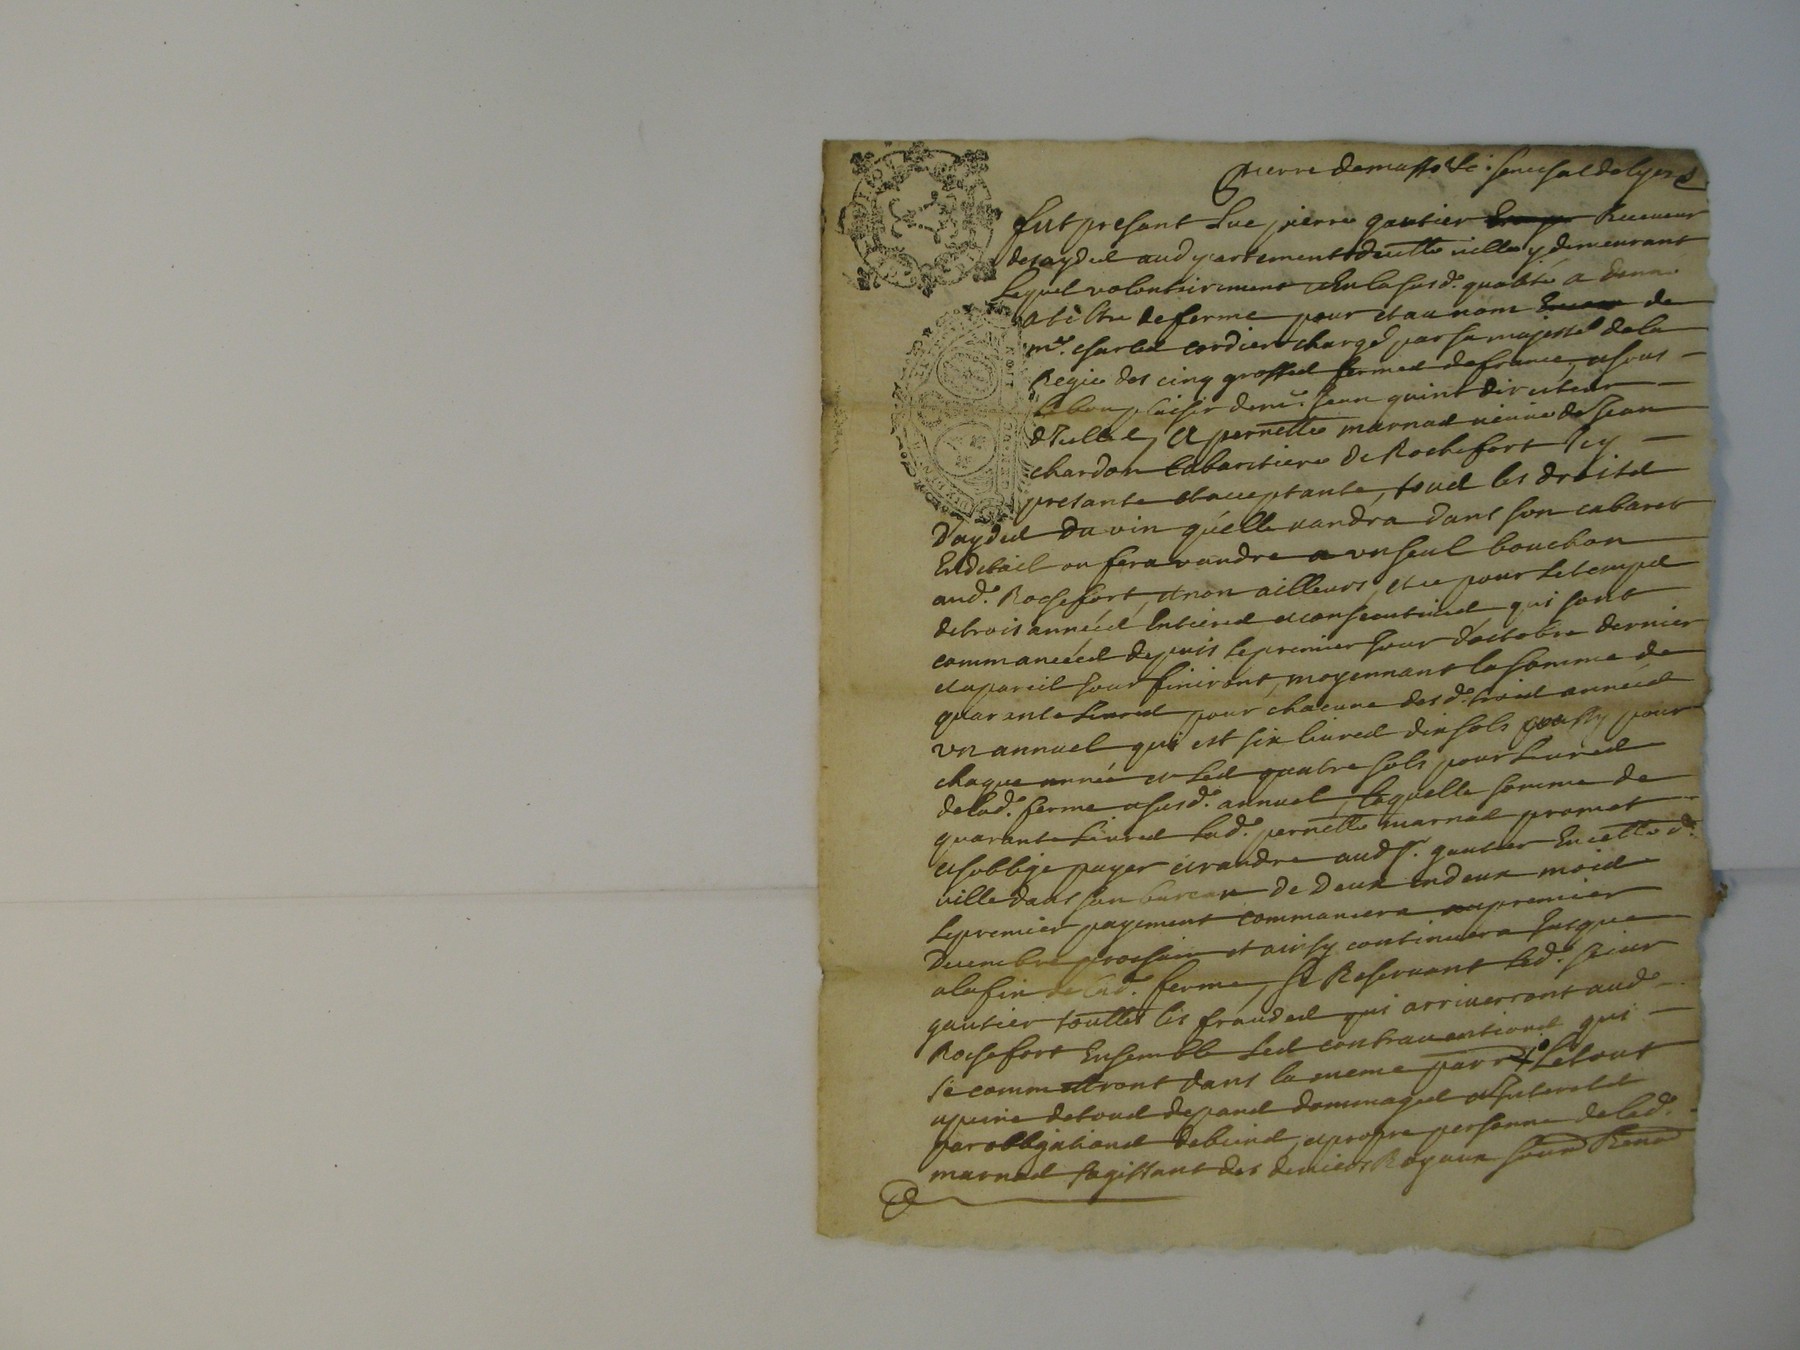 Pierre demasso &c: senechal de Lyon
fut presant Luc pierre gautier Receueur
des aydes au departement de cette ville y demeurant
Lequel volontairement En la susd. qualité a donné
a tiltre de ferme pour et au nom de
mr. charles cordier chargé par sa majesté de la
Regie des cinq grosses fermes de france, et sous
le bon plaisir de mr. Jean quint directeur
, A pernette marnas veuue de Jean
chardon Cabaretiere de Rochefort Icy
presante et acceptante, tous les droits
d'aydes du vin qu'elle vandra dans son cabaret
En detail ou fera vandre a vn seul bouchon
aud. Rochefort, et non ailleurs, et ce pour le temps
de trois années Entieres et consecutiues qui sont
commancées depuis le premier Jour d'octobre dernier
et a pareil Jour finiront, moyennant la somme de
quarante Liures pour chacune des d. trois années
vn annuel qui est six liures dix sols pour
chaque année et Les quatre sols pour Liures
de lad. ferme et susd. annuel, laquelle somme de
quarante Liures Lad. pernette marnas promet
et s'obblige payer et randre aud. sr. gautier En cette d.
ville dans son bureau de Deux en deux mois
Le premier payement commancera au premier
Decembre prochain et ainsy continuera Jusque
a la fin de lad. ferme, se Reseruant Led. sieur
gautier touttes les fraudes qui arriuerront aud.
Rochefort Ensemble Les contrauentions qui
se commettront dans la meme parr. Le tout
a peine de tous depans dommages et Interests
par obbligations de biens, et propre personne de lad.
marnas s'agissant des deniers Royaux soumd. Renond.